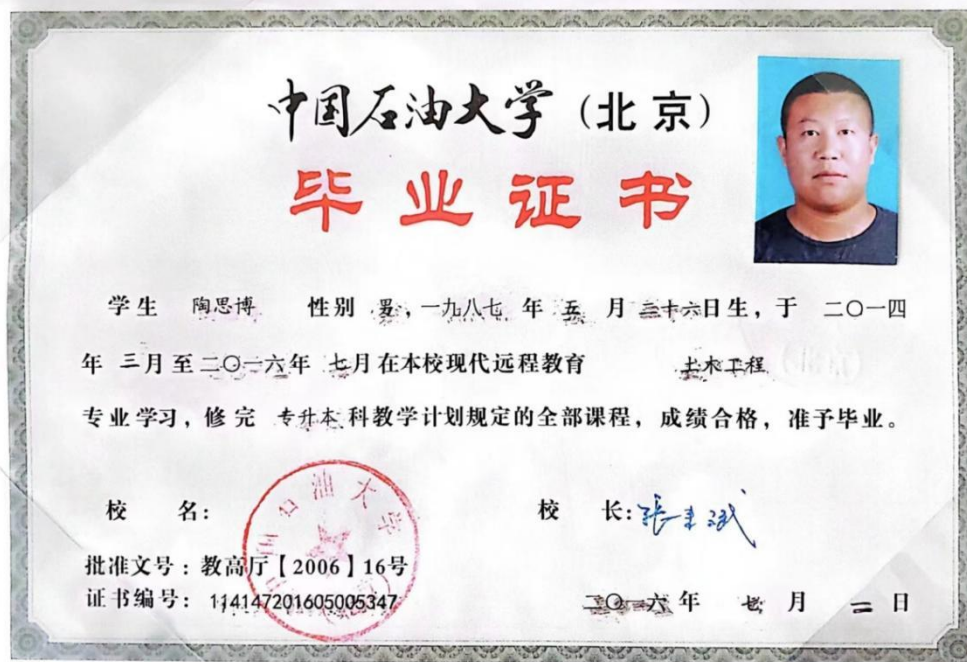 中国石油大学(北京)
毕业证书
学生 陶思博 性别 男，一九八七 年 五 月 二十六日生，于 二〇一四
年 三月至二〇一六年 七月在本校现代远程教育 土木工程
专业学习，修完 专升本 科教学计划规定的全部课程，成绩合格，准予毕业。
校 名： 校 长：张来斌
石油大学
批准文号：教高厅【2006】16号
证书编号：114147201605005347 二〇一六年 七 月 二 日